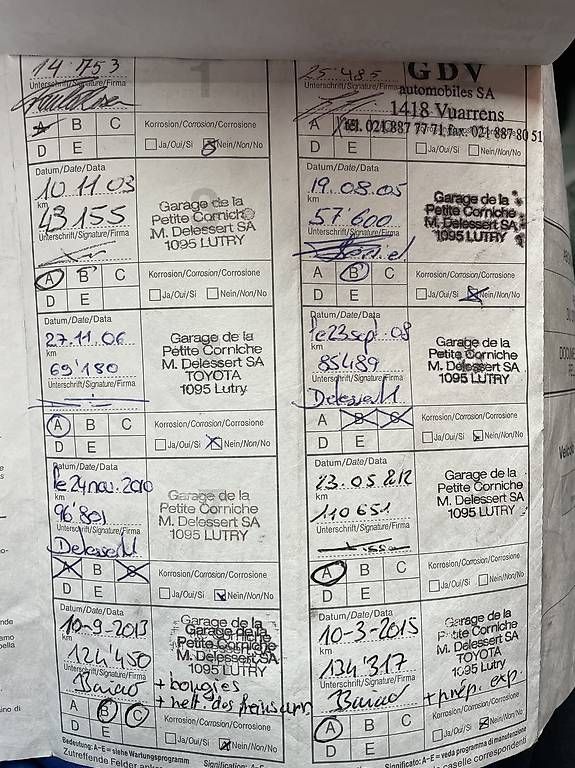 14'753
Unterschrift/Signature/Firma
A B C
Korrosion/Corrosion/Corrosione
D E
Ja/Oui/Si Nein/Non/No
25'485
Unterschrift/Signature/Firma
GDV
automobiles SA
1418 Vuarrens
tél. 021 887 77 71, fax. 021 887 80 51
A B C
D E
Ja/Oui/Si Nein/Non/No
Datum/Date/Data
10.11.03
km
43'155
Unterschrift/Signature/Firma
Garage de la
Petite Corniche
M. Delessert SA
1095 LUTRY
A B C
Korrosion/Corrosion/Corrosione
D E
Ja/Oui/Si Nein/Non/No
Datum/Date/Data
19.08.05
km
57'600
Unterschrift/Signature/Firma
Garage de la
Petite Corniche
M. Delessert SA
1095 LUTRY
A B C
Korrosion/Corrosion/Corrosione
D E
Ja/Oui/Si Nein/Non/No
Datum/Date/Data
27.11.06
km
69'180
Unterschrift/Signature/Firma
Garage de la
Petite Corniche
M. Delessert SA
TOYOTA
1095 Lutry
A B C
Korrosion/Corrosion/Corrosione
D E
Ja/Oui/Si Nein/Non/No
Datum/Date/Data
le 23 sept. 08
km
85'489
Unterschrift/Signature/Firma
Garage de la
Petite Corniche
M. Delessert SA
1095 LUTRY
A B C
Korrosion/Corrosion/Corrosione
D E
Ja/Oui/Si Nein/Non/No
Datum/Date/Data
le 24 nov. 2010
km
96'801
Unterschrift/Signature/Firma
Garage de la
Petite Corniche
M. Delessert SA
1095 LUTRY
A B C
Korrosion/Corrosion/Corrosione
D E
Ja/Oui/Si Nein/Non/No
Datum/Date/Data
km
110651
Unterschrift/Signature/Firma
Garage de la
Petite Corniche
M. Delessert SA
1095 LUTRY
A B C
Korrosion/Corrosion/Corrosione
D E
Ja/Oui/Si Nein/Non/No
Datum/Date/Data
10-9-2013
km
124'450
Unterschrift/Signature/Firma
Garage de la
Petite Corniche
M. Delessert SA
1095 LUTRY
+ bougies
+ nett. des freins
A B C
Korrosion/Corrosion/Corrosione
D E
Ja/Oui/Si Nein/Non/No
Datum/Date/Data
10-3-2015
km
134'317
Unterschrift/Signature/Firma
Garage de la
Petite Corniche
M. Delessert SA
TOYOTA
1095 Lutry
+ prép. exp.
A B C
Korrosion/Corrosion/Corrosione
D E
Ja/Oui/Si Nein/Non/No
Bedeutung: A-E = siehe Wartungsprogramm
Zutreffende Felder
Significato: A-E = veda programma di manutenzione
caselle corrispondenti